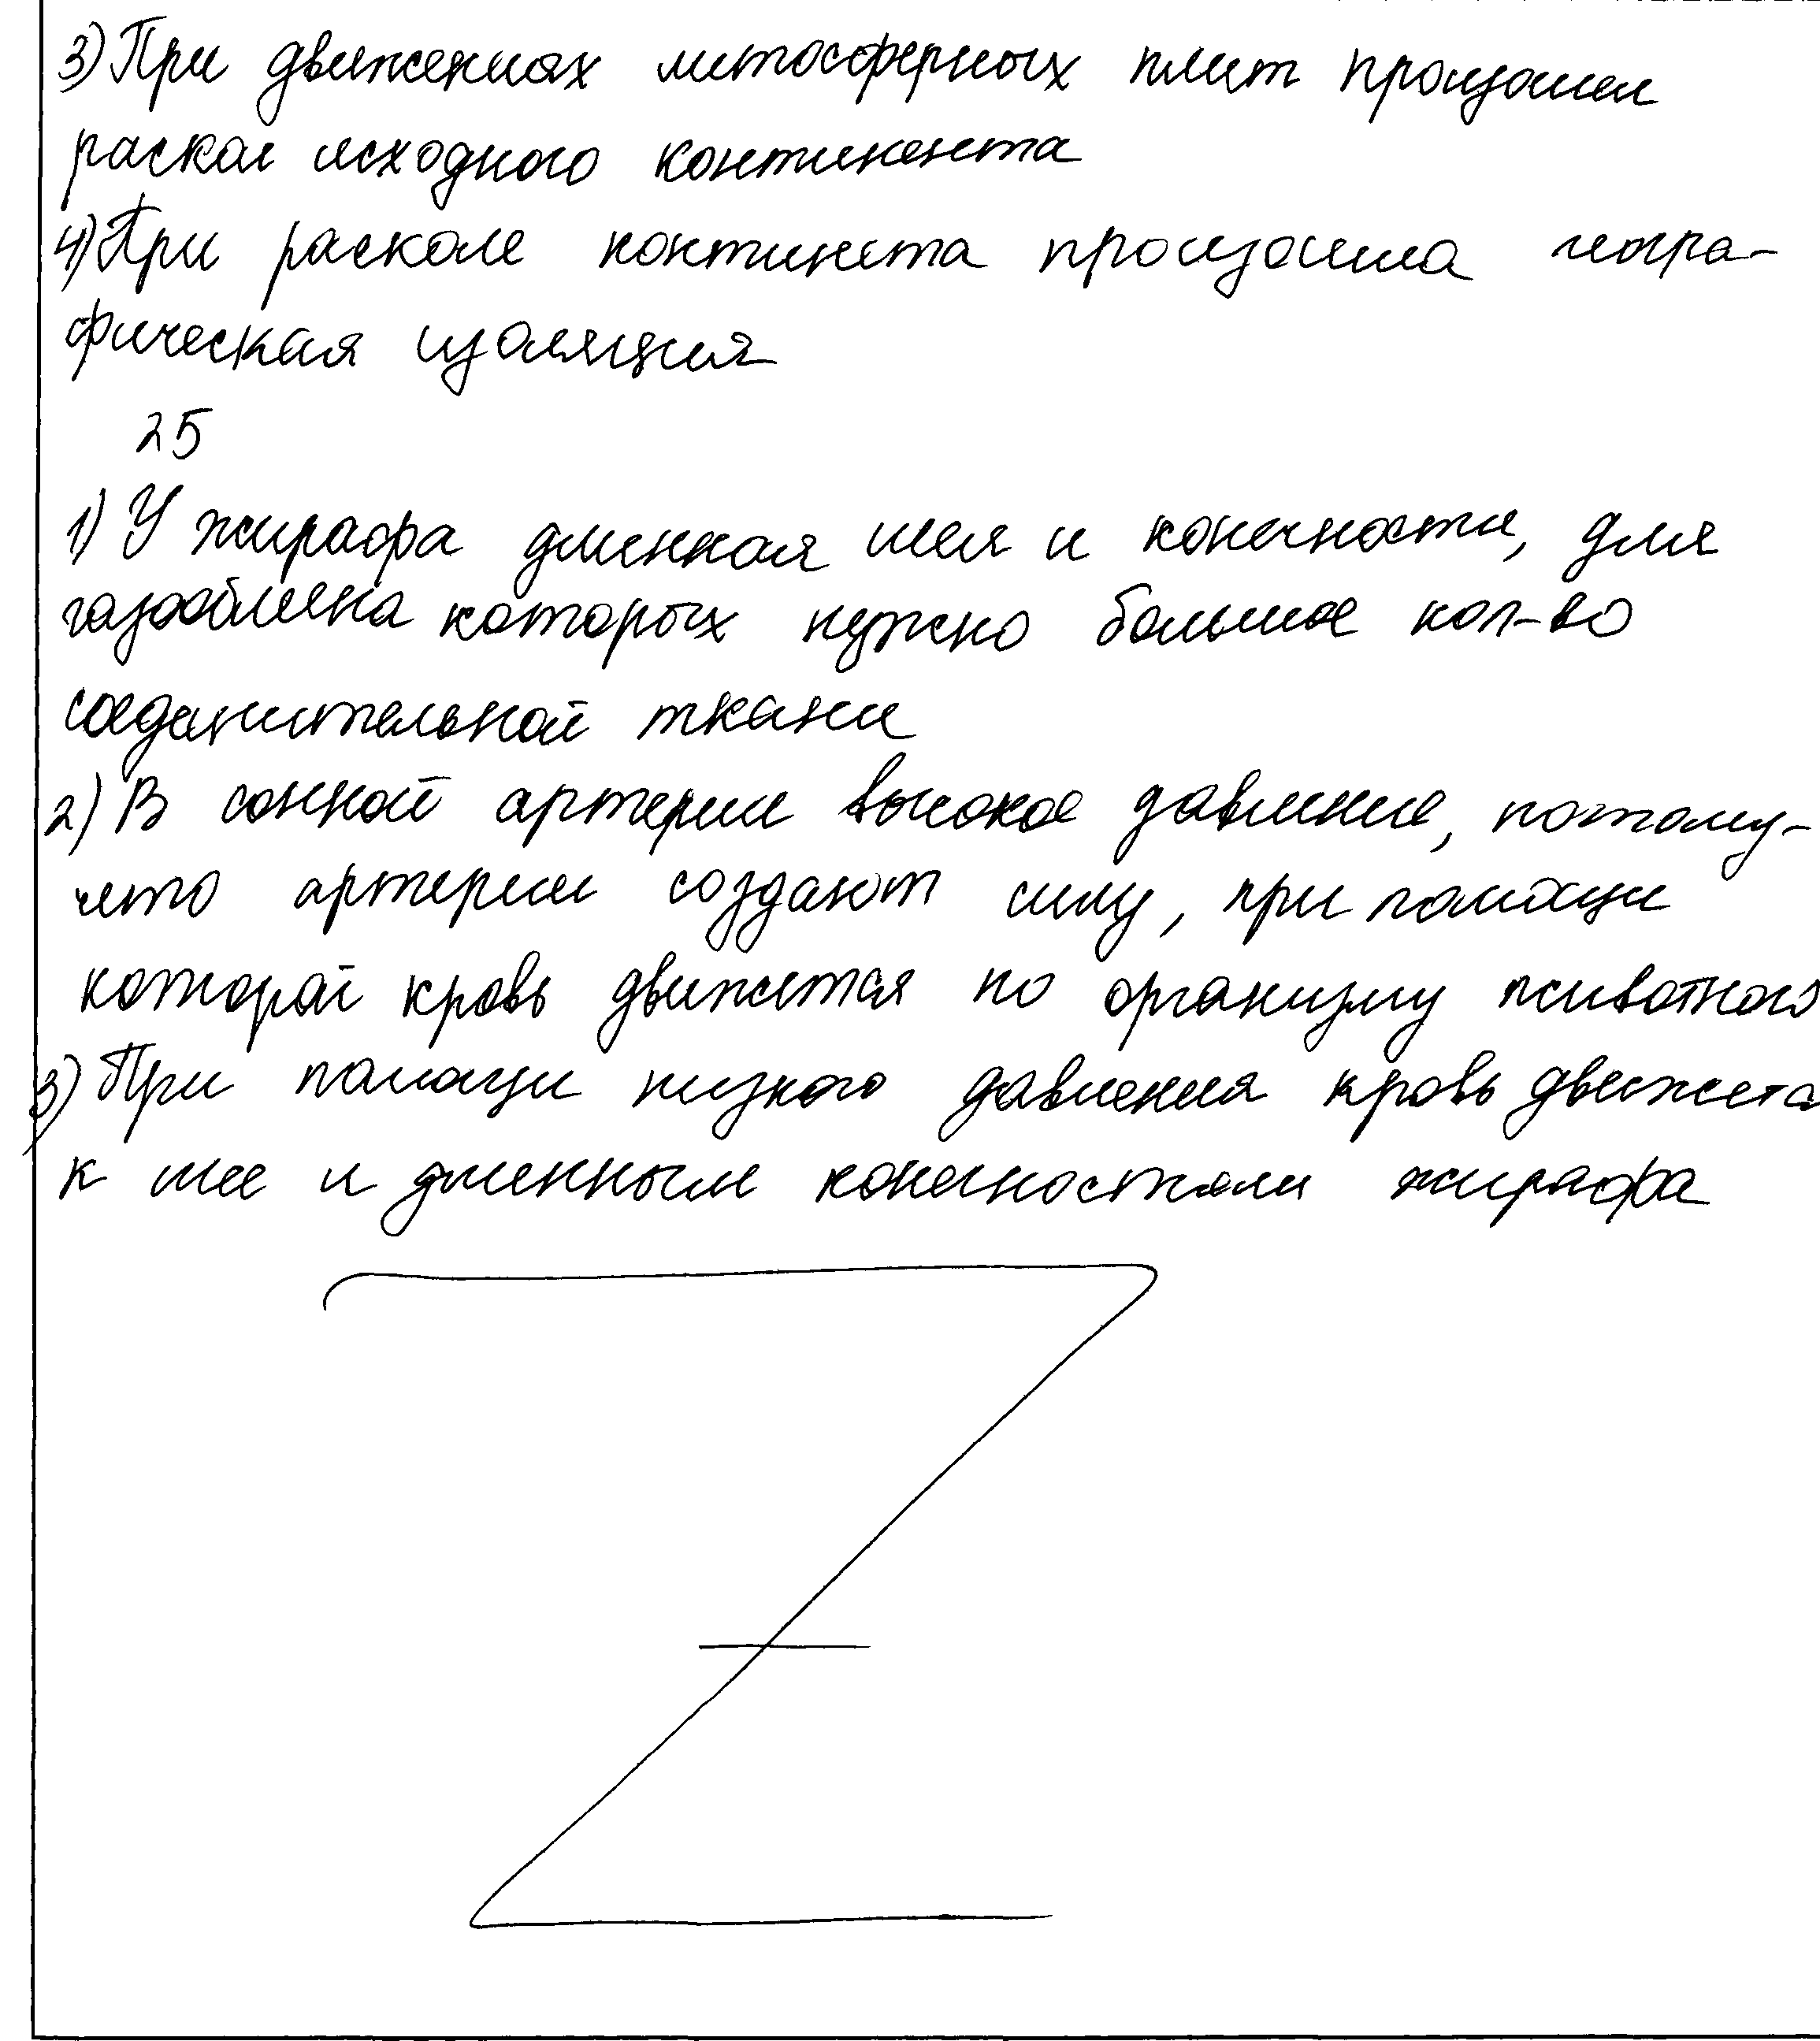 3) При движениях литосферных плит произошел
раскол исходного континента
4) При расколе континента произошла геогра-
фическая изоляция
25
1) У жирафа длинная шея и конечности, для
газообмена которых нужно большое кол-во
соединительной ткани
2) В сонной артерии высокое давление, потому-
что артерии создают силу, при помощи
которой кровь движется по организму животного
3) При помощи низкого давления кровь движется
к шее и длинным конечностям жирафа
Z